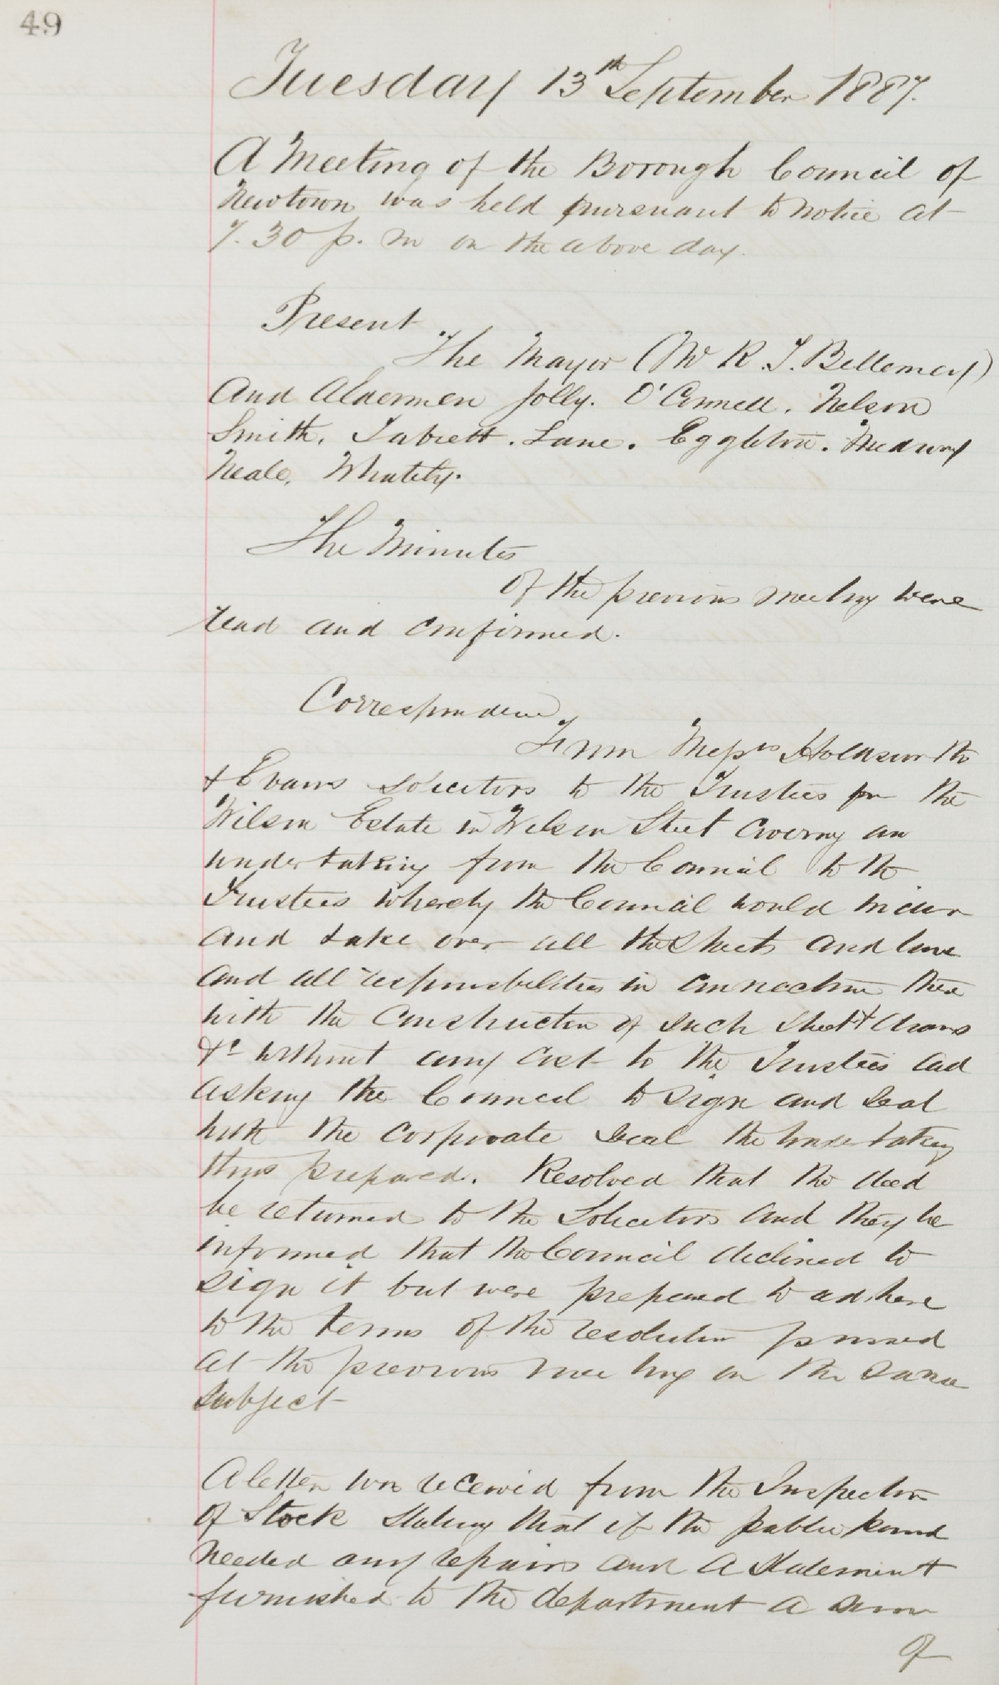 49
Tuesday 13th September 1887.
A Meeting of the Borough Council of
Newtown was held pursuant to notice at
7.30 p.m on the above day.
Present
The Mayor (Mr R. T. Bellemey)
and Aldermen Jolly. O'Connell. Nelson
Smith. Tabrett. Lane. Eggleton.
Neale, Whately.
The Minutes
of the previous meeting were
read and confirmed.
Correspondence
From Messrs Holdsworth
& Evans Solicitors to the Trustees for the
Wilson Estate in Wilson Street covering an
undertaking from the Council to the
Trustees whereby the Council would
and take over all the Streets and lane
and all responsibilities in connection there
with the construction of such Street & drains
&c without any cost to the Trustees and
asking the Council to sign and Seal
with the corporate Seal the undertaking
thus prepared. Resolved that the deed
be returned to the Solicitors and they be
informed that the Council declined to
sign it but were prepared to adhere
to the terms of the resolution passed
at the previous meeting on the same
subject
A letter was received from the Inspector
of Stock stating that if the public pound
needed any repairs and a statement
furnished to the department a sum
of